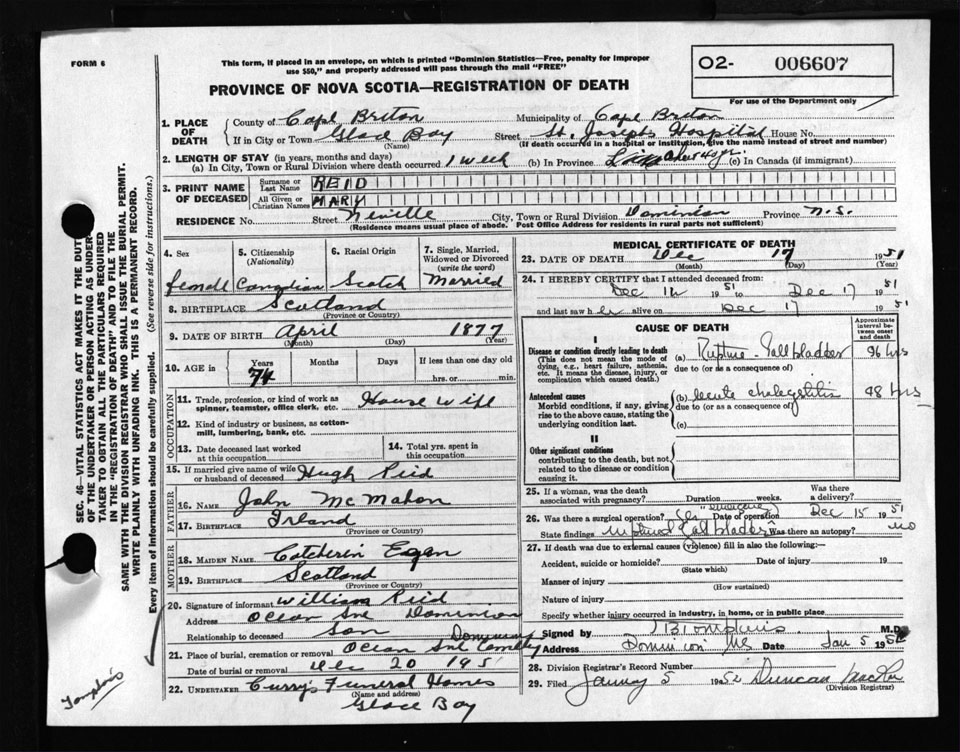 FORM 6
This form, if placed in an envelope, on which is printed "Dominion Statistics—Free, penalty for improper
use $50," and properly addressed will pass through the mail "FREE"
O2- 006607
For use of the Department only
PROVINCE OF NOVA SCOTIA—REGISTRATION OF DEATH
1. PLACE OF DEATH
County of Cape Briton Municipality of Cape Briton
If in City or Town Glace Bay Street St. Josephs Hospital House No.
(Name) (If death occurred in a hospital or institution, give the name instead of street and number)
2. LENGTH OF STAY (in years, months and days)
(a) In City, Town or Rural Division where death occurred 1 week (b) In Province (c) In Canada (if immigrant)
3. PRINT NAME OF DECEASED
Surname or Last Name REID
All Given or Christian Names MARY
RESIDENCE No. Street Neville City, Town or Rural Division Dominion Province N.S.
(Residence means usual place of abode. Post Office Address for residents in rural parts not sufficient)
4. Sex 5. Citizenship (Nationality) 6. Racial Origin 7. Single, Married, Widowed or Divorced (write the word)
femall Canadian Scotch Married
8. BIRTHPLACE Scotland
(Province or Country)
9. DATE OF BIRTH April 1877
(Month) (Day) (Year)
10. AGE in Years Months Days If less than one day old
74 hrs. or min.
OCCUPATION
11. Trade, profession, or kind of work as House Wife
spinner, teamster, office clerk, etc.
12. Kind of industry or business, as cotton-
mill, lumbering, bank, etc.
13. Date deceased last worked at this occupation
14. Total yrs. spent in this occupation
15. If married give name of wife or husband of deceased Hugh Reid
FATHER
16. NAME John McMahon
17. BIRTHPLACE Irland
MOTHER
18. MAIDEN NAME Catherin Egan
19. BIRTHPLACE Scotland
(Province or Country)
20. Signature of informant William Reid
Address Ocean Dominion
Relationship to deceased son
21. Place of burial, cremation or removal Ocean
Date of burial or removal Dec 20 195
22. UNDERTAKER Curry's Funeral Homes
(Name and address)
Glace Bay
MEDICAL CERTIFICATE OF DEATH
23. DATE OF DEATH Dec 17 1951
(Month) (Day) (Year)
24. I HEREBY CERTIFY that I attended deceased from:
Dec 12 1951 to Dec 17 1951
and last saw her alive on Dec 17 1951
CAUSE OF DEATH
Approximate interval between onset and death
I
Disease or condition directly leading to death
(This does not mean the mode of dying, e.g., heart failure, asthenia, etc. It means the disease, injury, or complication which caused death.)
(a) Rupture Gall bladder 96 hrs
due to (or as a consequence of)
Antecedent causes
Morbid conditions, if any, giving rise to the above cause, stating the underlying condition last.
(b) 48 hrs
due to (or as a consequence of)
(c)
II
Other significant conditions
contributing to the death, but not related to the disease or condition causing it.
25. If a woman, was the death associated with pregnancy? Duration weeks. Was there a delivery?
26. Was there a surgical operation? Yes emergency Date of operation Dec 15 1951
State findings ruptured Gall bladder Was there an autopsy? no
27. If death was due to external causes (violence) fill in also the following:—
Accident, suicide or homicide? Date of injury 19
(State which)
Manner of injury
(How sustained)
Nature of injury
Specify whether injury occurred in industry, in home, or in public place
Signed by M.D.
Address Dominion NS Date Jan 5 1952
28. Division Registrar's Record Number
29. Filed January 5 1952 Duncan
(Division Registrar)
SEC. 46—VITAL STATISTICS ACT MAKES IT THE DUTY
OF THE UNDERTAKER OR PERSON ACTING AS UNDER-
TAKER TO OBTAIN ALL THE PARTICULARS REQUIRED
IN THE "REGISTRATION OF DEATH" AND TO FILE THE
SAME WITH THE DIVISION REGISTRAR WHO SHALL ISSUE THE BURIAL PERMIT.
WRITE PLAINLY WITH UNFADING INK. THIS IS A PERMANENT RECORD.
Every item of information should be carefully supplied. (See reverse side for instructions.)
Tompkins